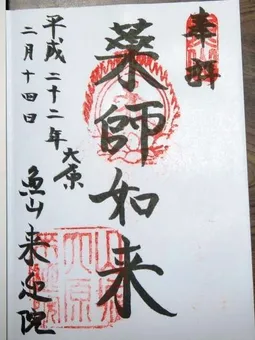 奉拝
薬師如来
平成二十二年
二月十四日
大原
魚山 来迎院